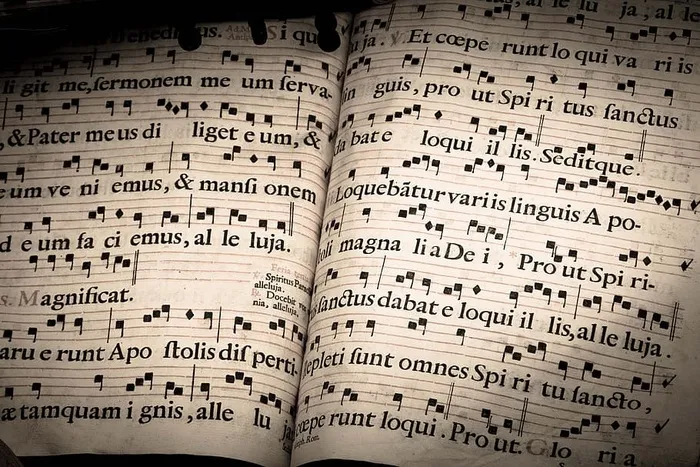 benedictus. Si qu
ligit me, sermonem me um serva-
, & Pater me us di liget e um, &
eum ve ni emus, & mansi onem
d e um fa ci emus, al le luja.
Spiritus
alleluja.
Docebit
nia, alleluja.
s. Magnificat.
aru e runt Apo stolis dis perti-
æ tamquam i gnis, alle lu ja
al le lu ja, al
uja. ℣ Et cœpe runt lo qui va ri is
in guis, pro ut Spi ri tus sanctus
da bat e loqui il lis. Sed itque.
Loquebātur variis linguis A po-
oli magna li a De i, * Pro ut Spi ri-
sanctus dabat e loqui il lis, al le luja.
epleti sunt omnes Spi ri tu sancto,
cœpe runt loqui. Pro ut. Glo ri a.